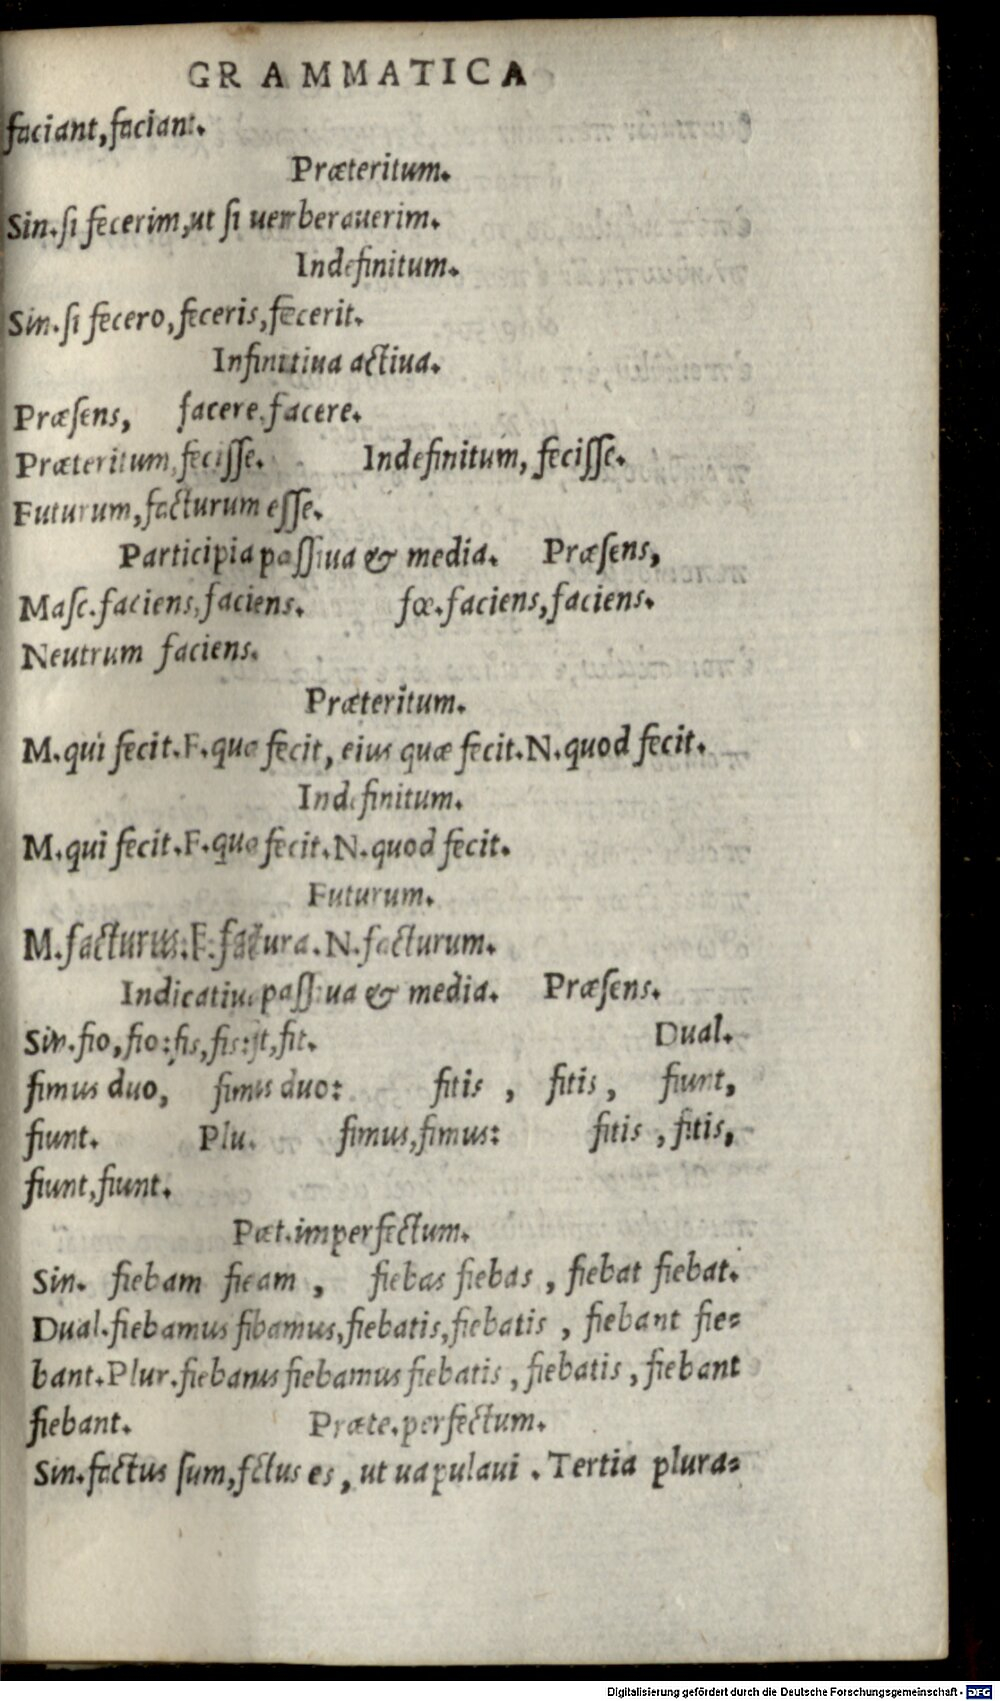 GRAMMATICA
faciant,faciant.
Præteritum.
Sin.ſi fecerim,ut ſi uerberauerim.
Indefinitum.
Sin.ſi fecero,feceris,fecerit.
Infinitiua actiua.
Præſens, facere.facere.
Præteritum,feciſſe. Indefinitum, feciſſe.
Futurum,facturum eſſe.
Participia paſſiua & media. Præſens,
Maſc.faciens,faciens. fœ.faciens,faciens.
Neutrum faciens.
Præteritum.
M.qui fecit.F.quæ fecit, eius quæ fecit.N.quod fecit.
Indefinitum.
M.qui fecit.F.quæ fecit.N.quod fecit.
Futurum.
M.facturus.F.factura.N.facturum.
Indicatiua paſſiua & media. Præſens.
Sin.fio,fio:fis,fis:fit,fit. Dual.
fimus duo, fimus duo: fitis , fitis , fiunt,
fiunt. Plu. fimus,fimus: fitis ,fitis,
fiunt,fiunt.
Pæt.imperfectum.
Sin. fiebam fieam , fiebas fiebas , fiebat fiebat.
Dual.fiebamus fibamus,fiebatis,fiebatis , fiebant fie=
bant.Plur.fiebamus fiebamus fiebatis , fiebatis , fiebant
fiebant. Præte.perfectum.
Sin.factus ſum,fctus es , ut uapulaui . Tertia plura=
Digitalisierung gefördert durch die Deutsche Forschungsgemeinschaft - DFG